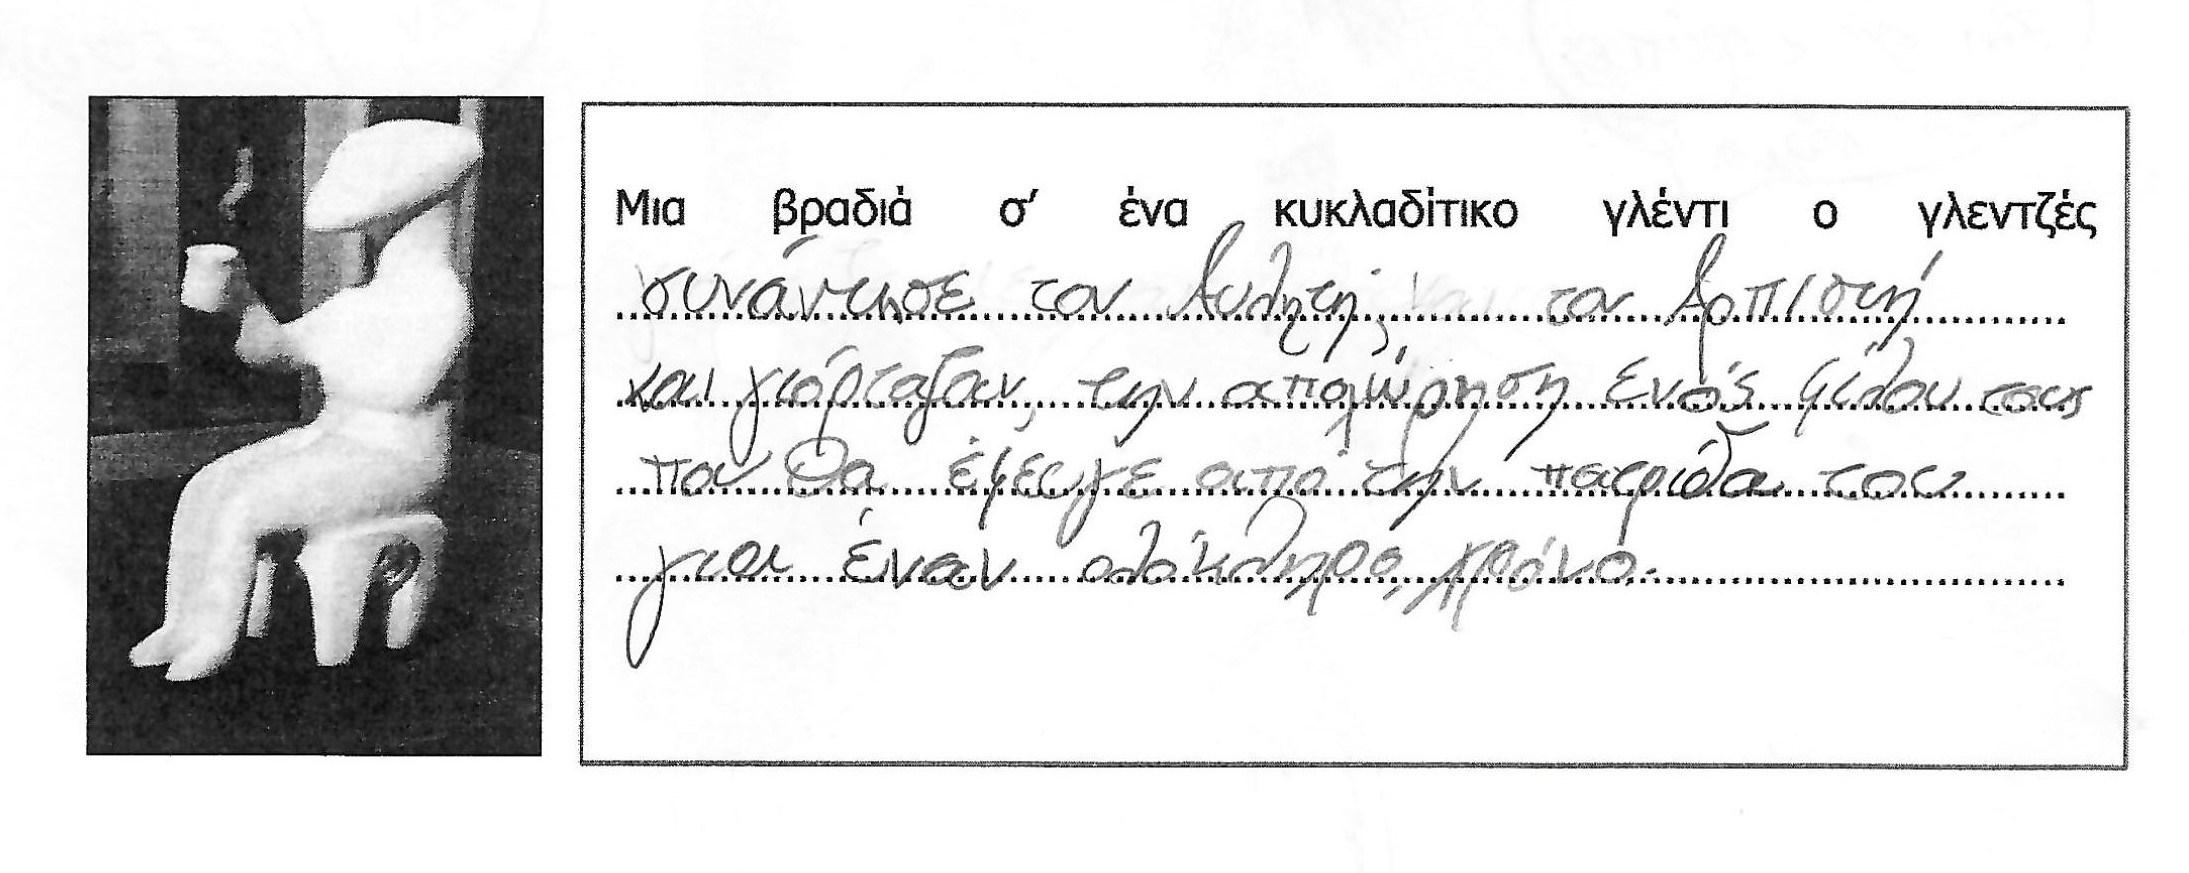 Μια βραδιά σ' ένα κυκλαδίτικο γλέντι ο γλεντζές
συνάντησε τον Αυλητή, τον Αρπιστή
και γιόρταζαν, την αποχώρηση ενός φίλου τους
που θα έφευγε από την πατρίδα του
για έναν ολόκληρο, χρόνο.